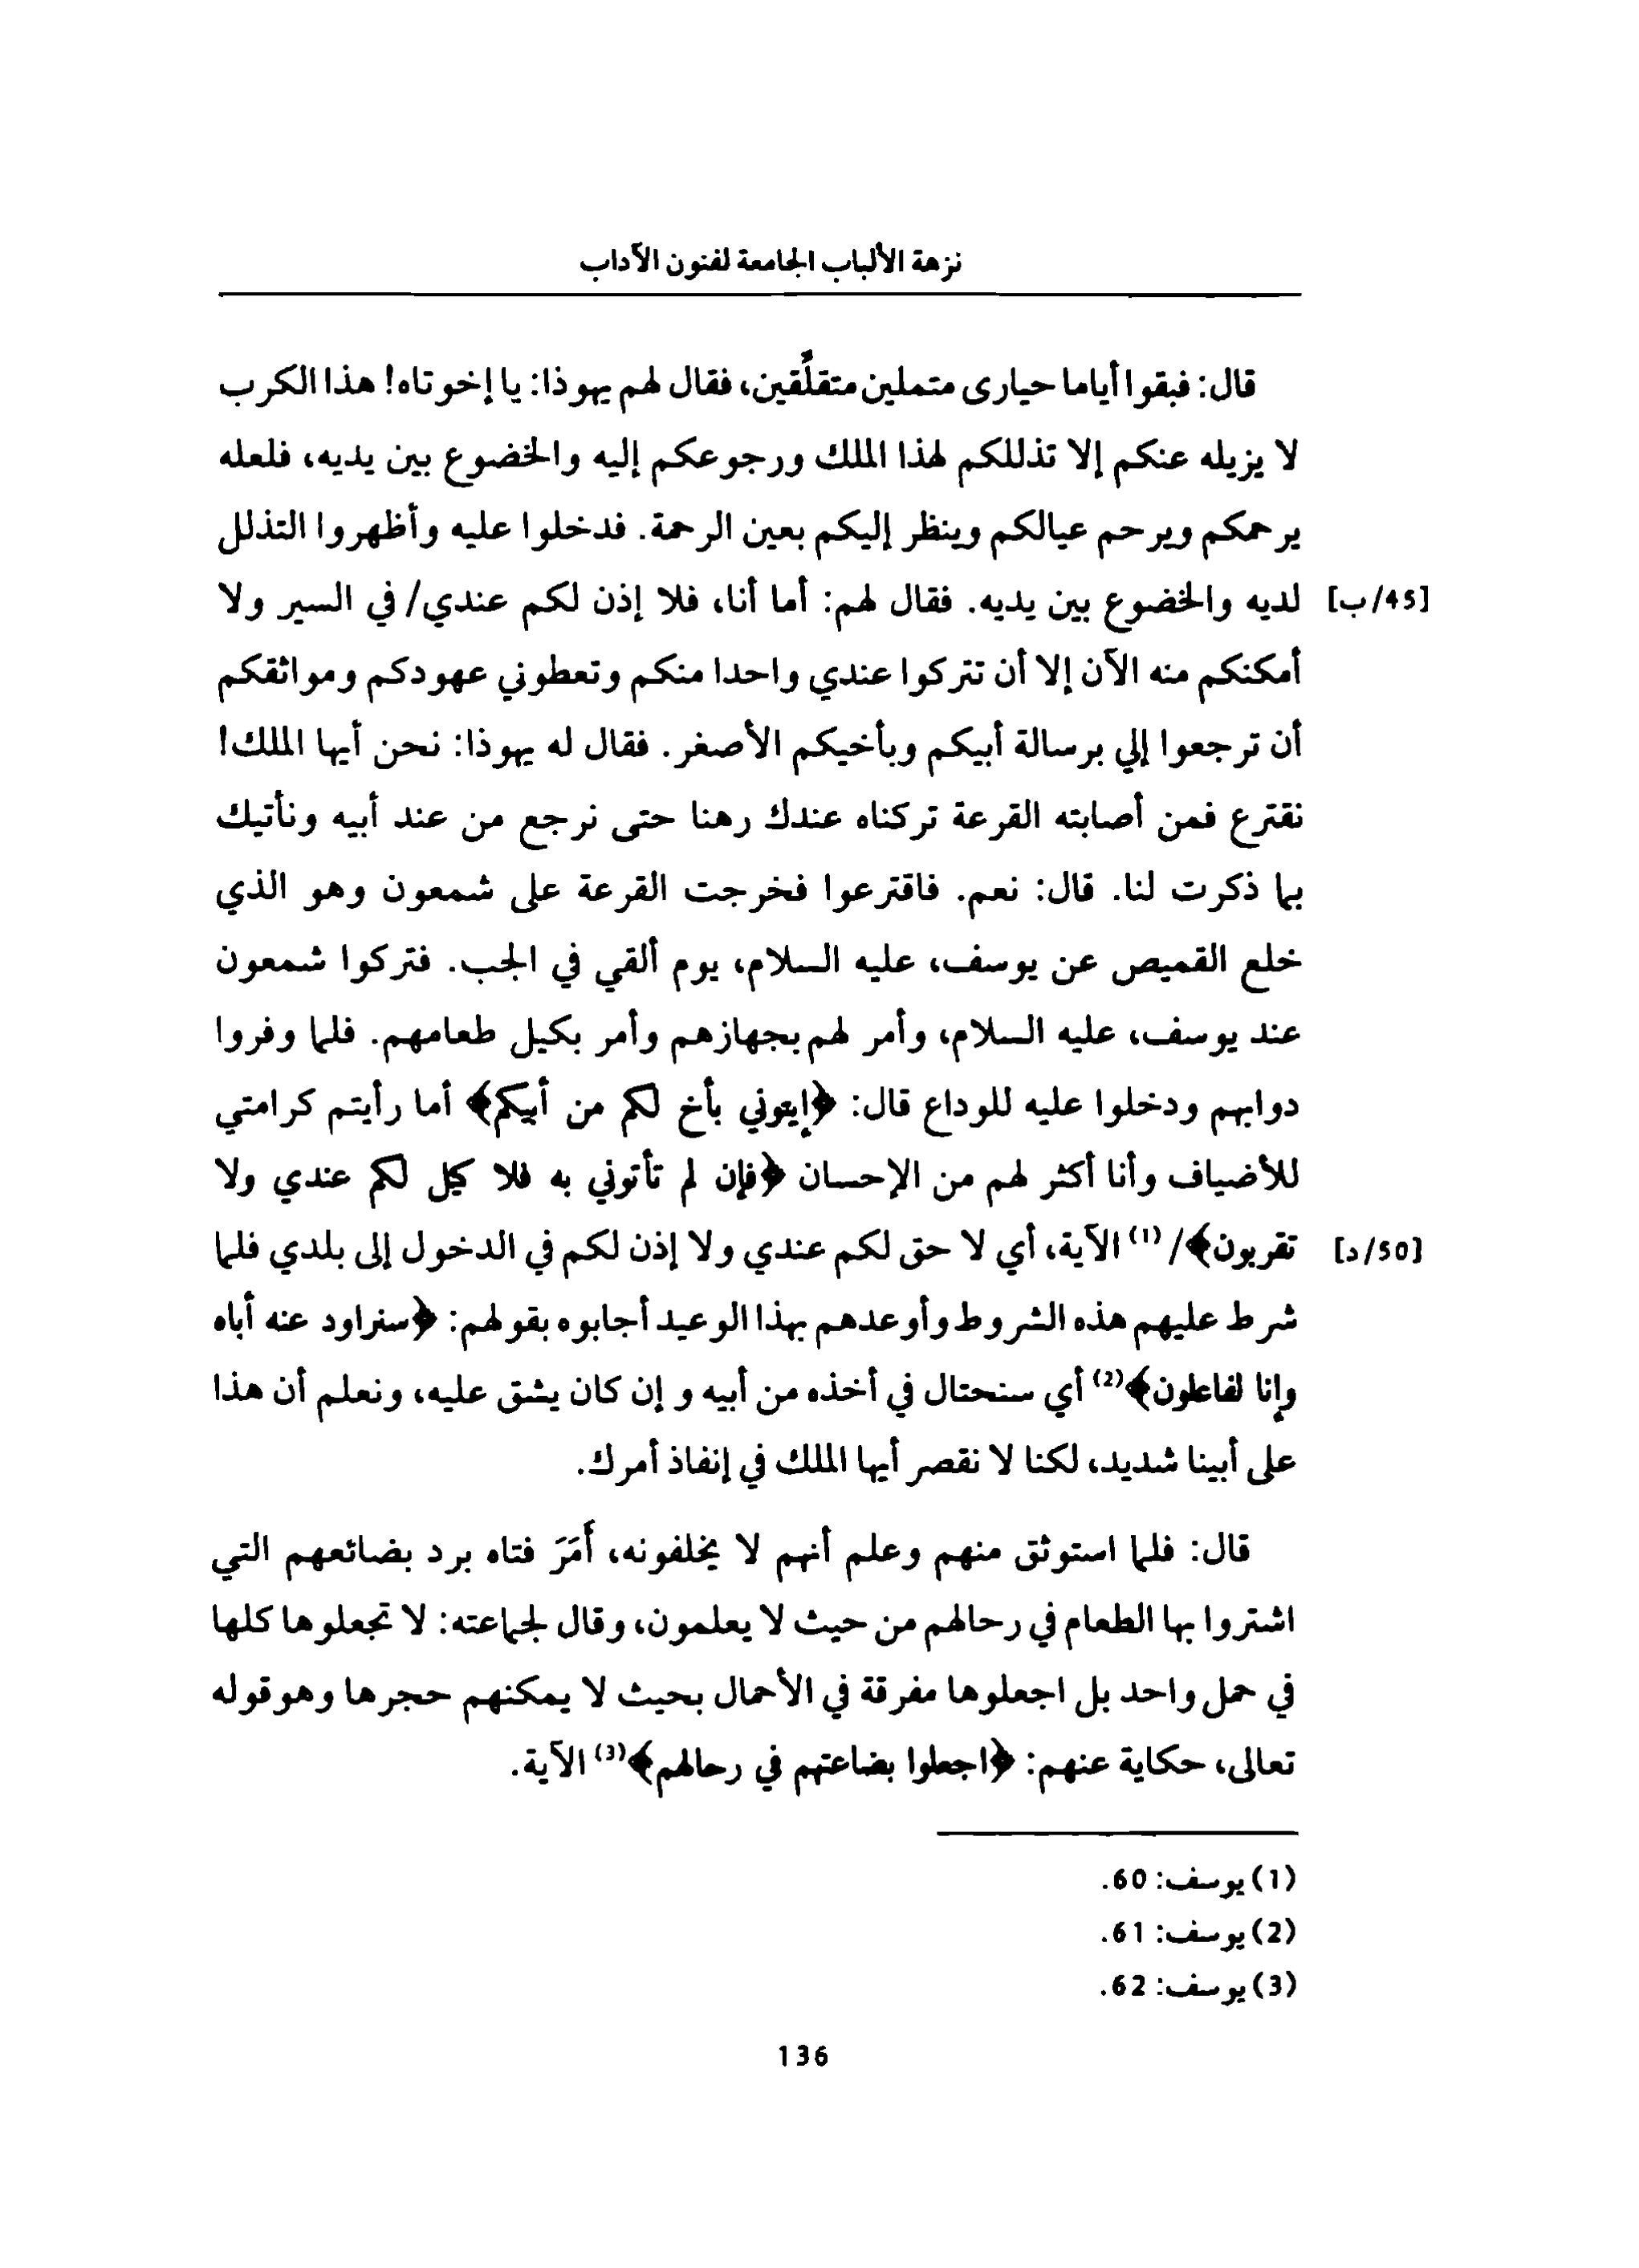 نزهة الألباب الجامعة لفنون الآداب
قال: فبقوا أياما حيارى متملين متقلِّقين، فقال لهم يهوذا: يا إخوتاه! هذا الكرب
لا يزيله عنكم إلا تذللكم لهذا الملك ورجوعكم إليه والخضوع بين يديه، فلعله
يرحمكم ويرحم عيالكم وينظر إليكم بعين الرحمة. فدخلوا عليه وأظهروا التذلل
[45/ب] لديه والخضوع بين يديه. فقال لهم: أما أنا، فلا إذن لكم عندي/ في السير ولا
أمكنكم منه الآن إلا أن تتركوا عندي واحدا منكم وتعطوني عهودكم ومواثقكم
أن ترجعوا إلي برسالة أبيكم وبأخيكم الأصغر. فقال له يهوذا: نحن أيها الملك!
نقترع فمن أصابته القرعة تركناه عندك رهنا حتى نرجع من عند أبيه ونأتيك
بما ذكرت لنا. قال: نعم. فاقترعوا فخرجت القرعة على شمعون وهو الذي
خلع القميص عن يوسف، عليه السلام، يوم ألقي في الجب. فتركوا شمعون
عند يوسف، عليه السلام، وأمر لهم بجهازهم وأمر بكيل طعامهم. فلما وفروا
دوابهم ودخلوا عليه للوداع قال: ﴿إيتوني بأخ لكم من أبيكم﴾ أما رأيتم كرامتي
للأضياف وأنا أكثر لهم من الإحسان ﴿فإن لم تأتوني به فلا كيل لكم عندي ولا
[50/د] تقربون﴾/ (1) الآية، أي لا حق لكم عندي ولا إذن لكم في الدخول إلى بلدي فلما
شرط عليهم هذه الشروط وأوعدهم بهذا الوعيد أجابوه بقولهم: ﴿سنراود عنه أباه
وإنا لفاعلون﴾(2) أي سنحتال في أخذه من أبيه و إن كان يشق عليه، ونعلم أن هذا
على أبينا شديد، لكنا لا نقصر أيها الملك في إنفاذ أمرك.
قال: فلما استوثق منهم وعلم أنهم لا يخلفونه، أَمَرَ فتاه برد بضائعهم التي
اشتروا بها الطعام في رحالهم من حيث لا يعلمون، وقال لجماعته: لا تجعلوها كلها
في حمل واحد بل اجعلوها مفرقة في الأحمال بحيث لا يمكنهم حجرها وهو قوله
تعالى، حكاية عنهم: ﴿اجعلوا بضاعتهم في رحالهم﴾(3) الآية.
(1) يوسف: 60.
(2) يوسف: 61.
(3) يوسف: 62.
136